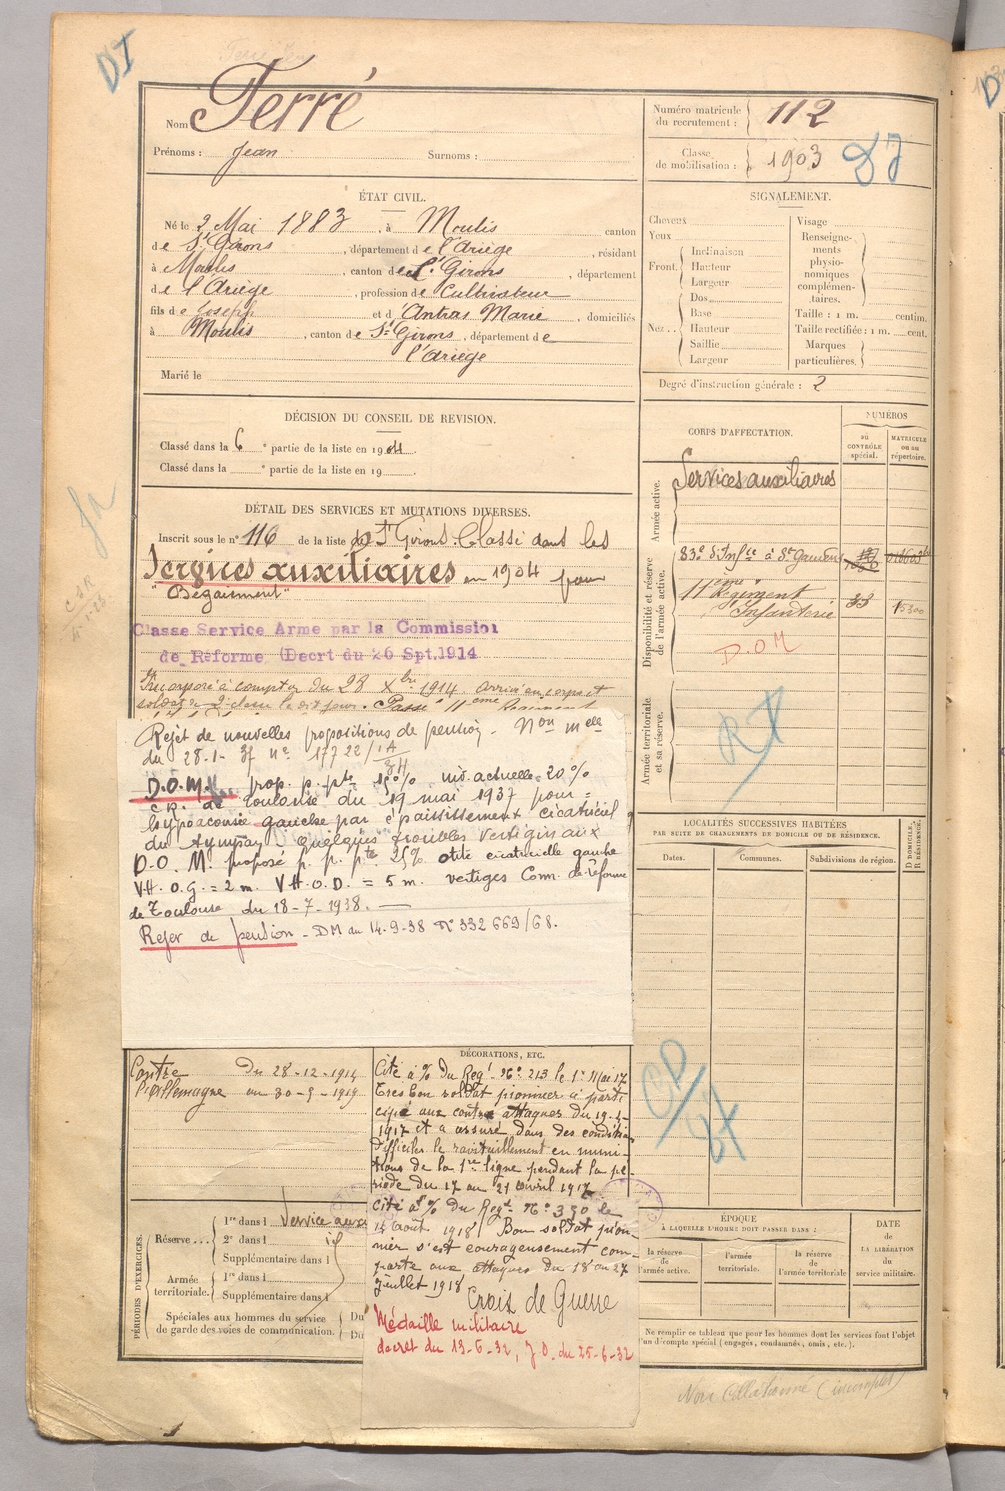 DI
Nom Ferré
Prénoms : Jean Surnoms :
Numéro matricule du recrutement : 112
Classe de mobilisation : 1903
ÉTAT CIVIL.
Né le 2 Mai 1883, à Moulis canton
de St Girons, département de l'Ariège, résidant
à Moulis, canton de St Girons, département
de l'Ariège, profession de Cultivateur
fils de Joseph et d'Antras Marie, domiciliés
à Moulis, canton de St Girons, département de
l'Ariège
Marié le
SIGNALEMENT.
Cheveux
Yeux
Front. Inclinaison
Hauteur
Largeur
Nez.. Dos
Base
Hauteur
Saillie
Largeur
Visage
Renseigne-
ments
physio-
nomiques
complémen-
taires.
Taille : 1 m. centim.
Taille rectifiée : 1 m. cent.
Marques
particulières.
Degré d'instruction générale : 2
DÉCISION DU CONSEIL DE REVISION.
Classé dans la 6e partie de la liste en 1904.
Classé dans la e partie de la liste en 19 .
DÉTAIL DES SERVICES ET MUTATIONS DIVERSES.
Inscrit sous le n° 116 de la liste de St Girons. Classé dans les
Services auxiliaires en 1904 pour
"Bégaiement"
Classe Service Arme par la Commission
de Réforme (Decrt du 26 Spt.1914
Incorporé à compter du 28 Xbre 1914. Arrivé au corps et
soldat 2e classe le dit jour. Passé 11eme Régiment
CORPS D'AFFECTATION.
NUMÉROS
au CONTRÔLE spécial.
MATRICULE ou au répertoire.
Armée active.
Services auxiliaires
Disponibilité et réserve de l'armée active.
83e d'Infie à St Gaudens
11ème Régiment
Infanterie 33 15300
D.O.M
Armée territoriale et sa réserve.
RT
Rejet de nouvelles propositions de pension. Non melle
du 28-1-37 n° 17722/1A
D.O.M. prop. p. pte 15% inv. actuelle = 20%
C.R. de Toulouse du 19 mai 1937 pour =
hypoacousie gauche par épaississement cicatriciel
du tympan. Quelques troubles vertigineux
D.O.M. proposé p. p. pte 25% otite cicatricielle gauche
V.H.O.G. = 2 m. V.H.O.D. = 5 m. vertiges Com. de réforme
de Toulouse du 18-7-1938.
Rejet de pension - DM du 14-9-38 N° 332 669/68.
LOCALITÉS SUCCESSIVES HABITÉES
PAR SUITE DE CHANGEMENTS DE DOMICILE OU DE RÉSIDENCE.
Dates. Communes. Subdivisions de région. D DOMICILE, R RÉSIDENCE.
Contre Du 28-12-1914
l'Allemagne au 30-9-1919
DÉCORATIONS, ETC.
Cité à % du Regt N° 213 le 1er Mai 17
Très bon soldat pionnier a parti
cipé aux contre attaques du 19-4-
1917 et a assuré dans des conditions
difficiles le ravitaillement en muni-
tions de la 1re ligne pendant la pé-
riode du 17 au 21 avril 1917
Cité à % du Regt N° 330 le
14 août 1918 / Bon soldat pion-
nier s'est courageusement com-
porté aux attaques du 18 au 27
Juillet 1918
Croix de Guerre
Médaille militaire
décret du 13-6-32, J.O. du 25-6-32
PÉRIODES D'EXERCICES.
Réserve...
1re dans l Service aux
2e dans l
Supplémentaire dans l
Armée territoriale.
1re dans l
Supplémentaire dans l
Spéciales aux hommes du service Du
de garde des voies de communication. Du
EPOQUE
À LAQUELLE L'HOMME DOIT PASSER DANS :
la réserve de l'armée active.
l'armée territoriale.
la réserve de l'armée territoriale
DATE de LA LIBÉRATION du service militaire.
Ne remplir ce tableau que pour les hommes dont les services font l'objet
d'un décompte spécial (engagés, condamnés, omis, etc.).
Non Collationné (incomplet)